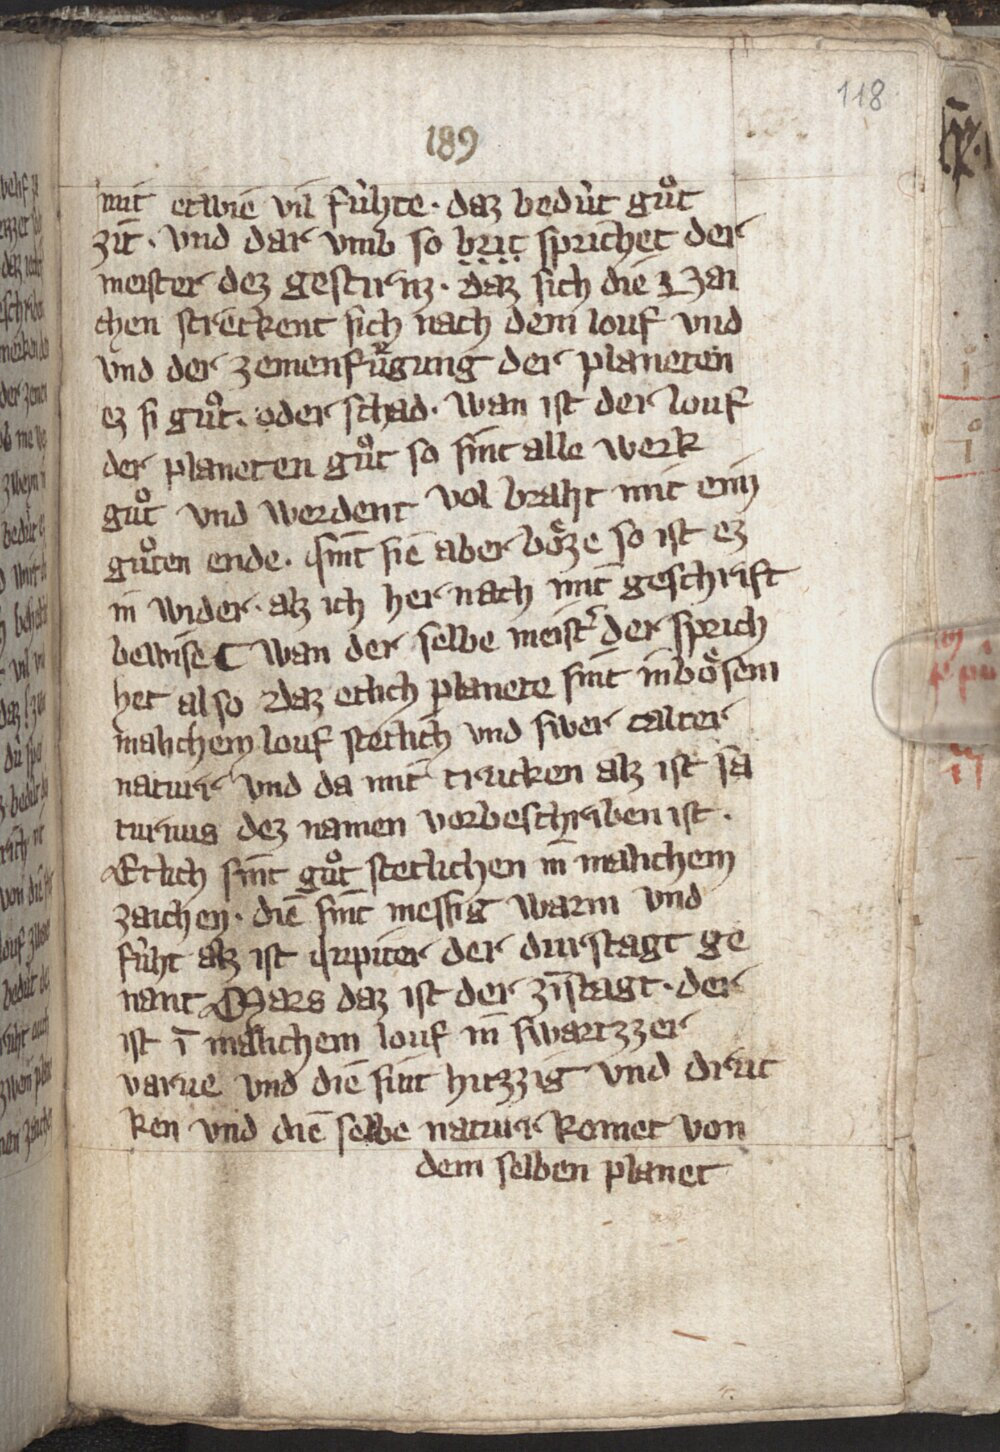 118
189
mit etwie vil fùhte · daz bedùt guͦt
zit · vnd dar vmb so brit sprichet der
meister dez gestirnz · daz sich die zai
chen streckent sich nach dem louf vnd
vnd der zemenfuͤgung der planeten
ez si guͦt · oder schad · wan ist der louf
der planeten guͦt so sint alle werk
guͦt vnd werdent vol braht mit eim
guͦten ende · sint sie aber boͤze so ist ez
in wider · alz ich her nach mit geschrift
bewise ¶ wan der selbe meistˢ der sprich
het also daz etlich planete sint in boͤsem
malichem louf stetlich vnd swer calter
natur vnd da mit trucken alz ist sa
turnus dez namen vorbeschriben ist ·
Etlich sint guͦt stetlichen in malichem
zaichen · die sint messig warm vnd
fùht alz ist iupiter der durstagt ge
nant Mars daz ist der zinstagt · der
ist ī malichem louf in swartzzer
varwe vnd die sint hitzzig vnd druc
ken vnd die selbe natur komet von
dem selben planet